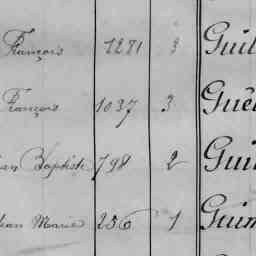 François 1281 3 Guil
François 1037 3 Guê
ean Baptiste 798 2 Gui
ean Marie 256 1 Guim